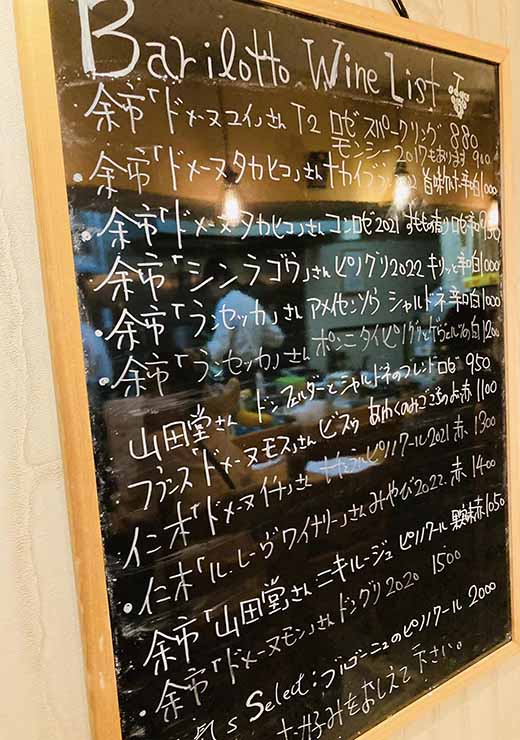 Barilotto Wine List
・余市「ドメーヌユイ」さん T2 ロゼ スパークリング 880
モンシー2017もあります 900
・余市「ドメーヌタカヒコ」さん ナカイブラン 旨味 辛口 白 1000
・余市「ドメーヌタカヒコ」さん コンロゼ2021 ロゼ 950
・余市「シンラゴウ」さん ピノグリ2022 キリッと辛口白 1000
・余市「ランセッカ」さん アメイセンソウ シャルドネ辛口白 1000
・余市「ランセッカ」さん ポンニタイ ピノグリ 白 1200
山田堂さん ドンフェルダーとシャルドネのブレンドロゼ 950
・フランス「ドメーヌモス」さん ビスゥ 赤 1100
・仁木「ドメーヌイチ」さん ナチュラルピノノワール2021 赤 1300
・仁木「ル・レーヴワイナリー」さん みやび2022. 赤 1400
・余市「山田堂」さん ニキルージュ ピノノワール 赤 1050
・余市「ドメーヌモン」さん ドングリ2020 1500
s Select:ブルゴーニュのピノノワール 2000
お好みをおしえて下さい。